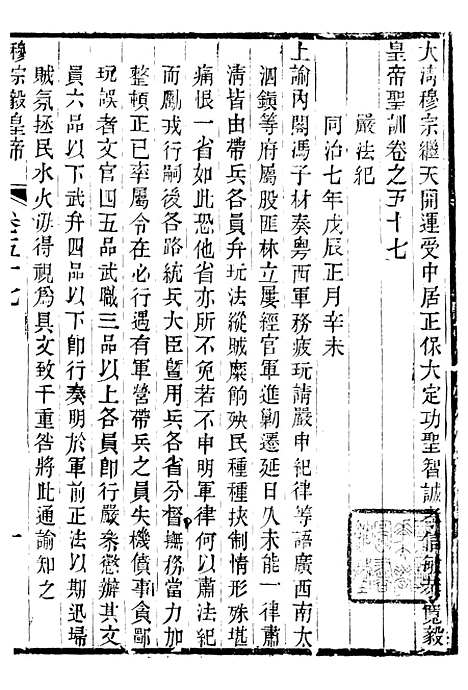 大清穆宗繼天開運受中居正保大定功聖智誠孝信敏恭寬毅
皇帝聖訓卷之五十七
嚴法紀
同治七年戊辰正月辛未
上諭內閣馮子材奏粵西軍務疲玩請嚴申紀律等語廣西南太
泗鎮等府屬股匪林立屢經官軍進勦遷延日久未能一律肅
清皆由帶兵各員弁玩法縱賊糜餉殃民種種挾制情形殊堪
痛恨一省如此恐他省亦所不免若不申明軍律何以肅法紀
而勵戎行嗣後各路統兵大臣暨用兵各省分督撫務當力加
整頓正已率屬令在必行遇有軍營帶兵之員失機僨事貪鄙
玩誤者文官四五品武職三品以上各員即行嚴叅懲辦其文
員六品以下武弁四品以下即行奏明於軍前正法以期迅埽
賊氛拯民水火毋得視為具文致干重咎將此通諭知之
穆宗毅皇帝
卷五十七
一